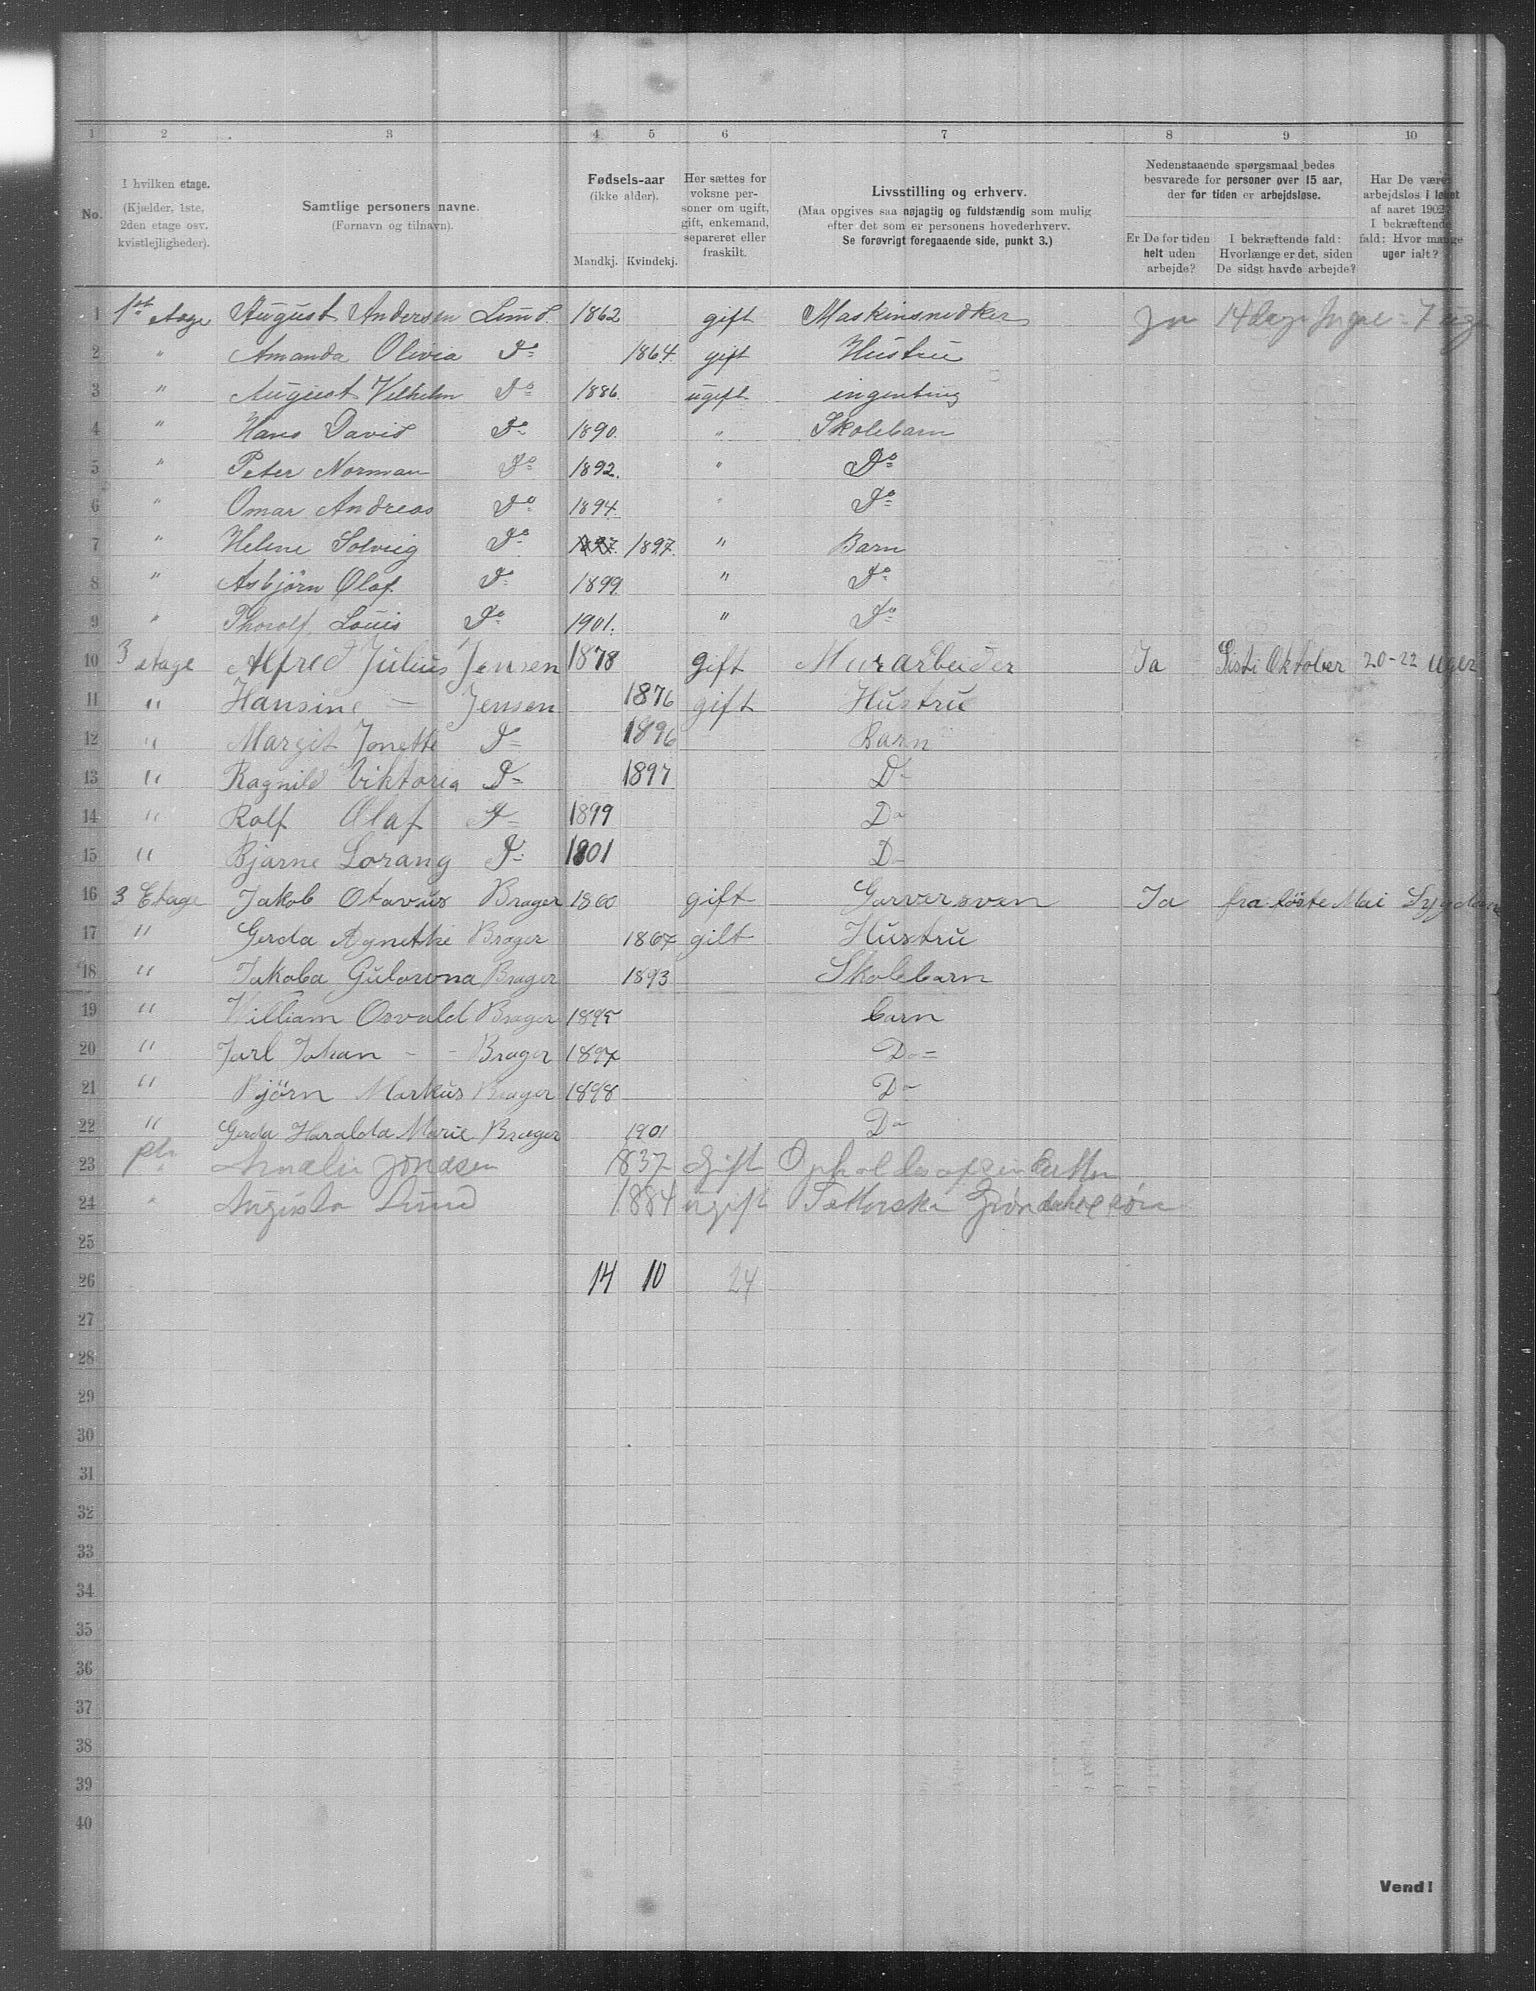 1 2 3 4 5 6 7 8 9 10
No.
I hvilken etage.
(Kjælder, 1ste,
2den etage osv.
kvistlejligheder).
Samtlige personers navne.
(Fornavn og tilnavn).
Fødsels-aar
(ikke alder).
Mandkj. Kvindekj.
Her sættes for
voksne per-
soner om ugift,
gift, enkemand,
separeret eller
fraskilt.
Livsstilling og erhverv.
(Maa opgives saa nøjagtig og fuldstændig som mulig
efter det som er personens hovederhverv.
Se forøvrigt foregaaende side, punkt 3.)
Nedenstaaende spørgsmaal bedes
besvarede for personer over 15 aar,
der for tiden er arbejdsløse.
Er De for tiden
helt uden
arbejde?
I bekræftende fald:
Hvorlænge er det, siden
De sidst havde arbejde?
Har De været
arbejdsløs i løbet
af aaret 1902?
I bekræftende
fald: Hvor mange
uger ialt?
1 1st etage August Andersen Lund. 1862 gift Maskinsnedker Ja 14 7
2 " Amanda Olivia Do 1864. gift Hustru
3 " August Vilhelm Do 1886. ugift ingenting
4 " Hans David Do 1890. " Skolebarn
5 " Peter Norman Do 1892. " Do
6 " Omar Andreas Do 1894. " Do
7 " Helene Solveig Do 1897. 1897. " Barn
8 " Asbjörn Olaf Do 1899. " Do
9 " Thorolf Louis Do 1901. " Do
10 3 etage Alfred Julius Jensen 1878 gift Murarbeider Ja Siste Oktober 20-22 Uger
11 " Hansine — Jensen 1876 gift Hustru
12 " Margit Jonette Do 1896 Barn
13 " Ragnild Viktoria Do 1897 Do
14 " Rolf Olaf Do 1899 Do
15 " Bjarne Lorang Do 1901 Do
16 3 Etage Jakob Otavus Brager 1860 gift Garversven Ja fra 1öste Mai Sygdom
17 " Gerda Agnethe Brager 1867 gilt Hustru
18 " Jakoba Gulorvna Brager 1893 Skolebarn
19 " William Osvald Brager 1895 barn
20 " Jarl Johan - - Brager 1897 Do =
21 " Björn Markus Brager 1898 Do
22 " Gerda Haralda Marie Brager 1901 Do
23 Amalie 1837 Gift
24 " Augusta Lund 1884 ugift
25
26 14 10 24
27
28
29
30
31
32
33
34
35
36
37
38
39
40
Vend!